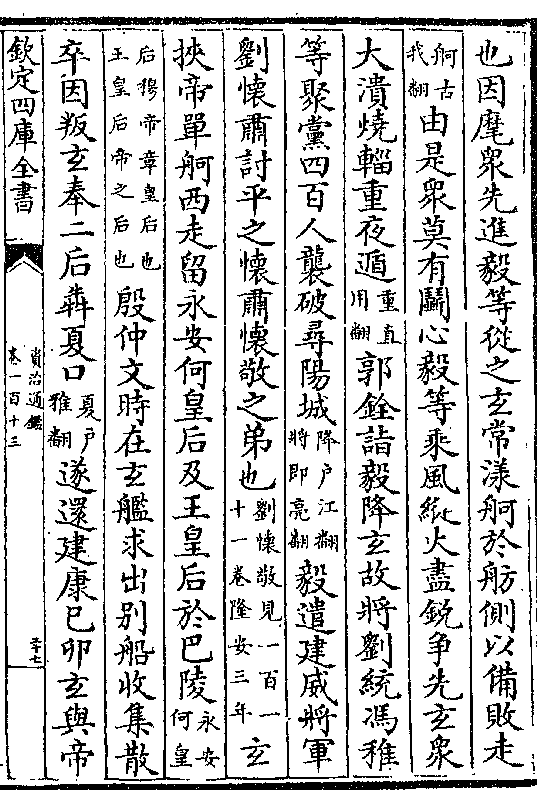 也因麾衆先進毅等從之玄常漾舸於舫側以備敗走
舸古我翻由是衆莫有鬬心毅等乘風縱火盡鋭争先玄衆
大潰燒輜重夜遁重直用翻郭銓詣毅降玄故將劉統馮稚
等聚黨四百人襲破尋陽城降户江翻將即亮翻毅遣建威將軍
劉懷肅討平之懷肅懷敬之弟也劉懷敬見一百一十一卷隆安三年玄
挾帝單舸西走留永安何皇后及王皇后於巴陵永安何皇
后穆帝章皇后也王皇后帝之后也殷仲文時在玄艦求出别船收集散
卒因叛玄奉二后犇夏口夏户雅翻遂還建康己卯玄與帝
欽定四庫全書
資治通鑑
卷一百十三
二十七